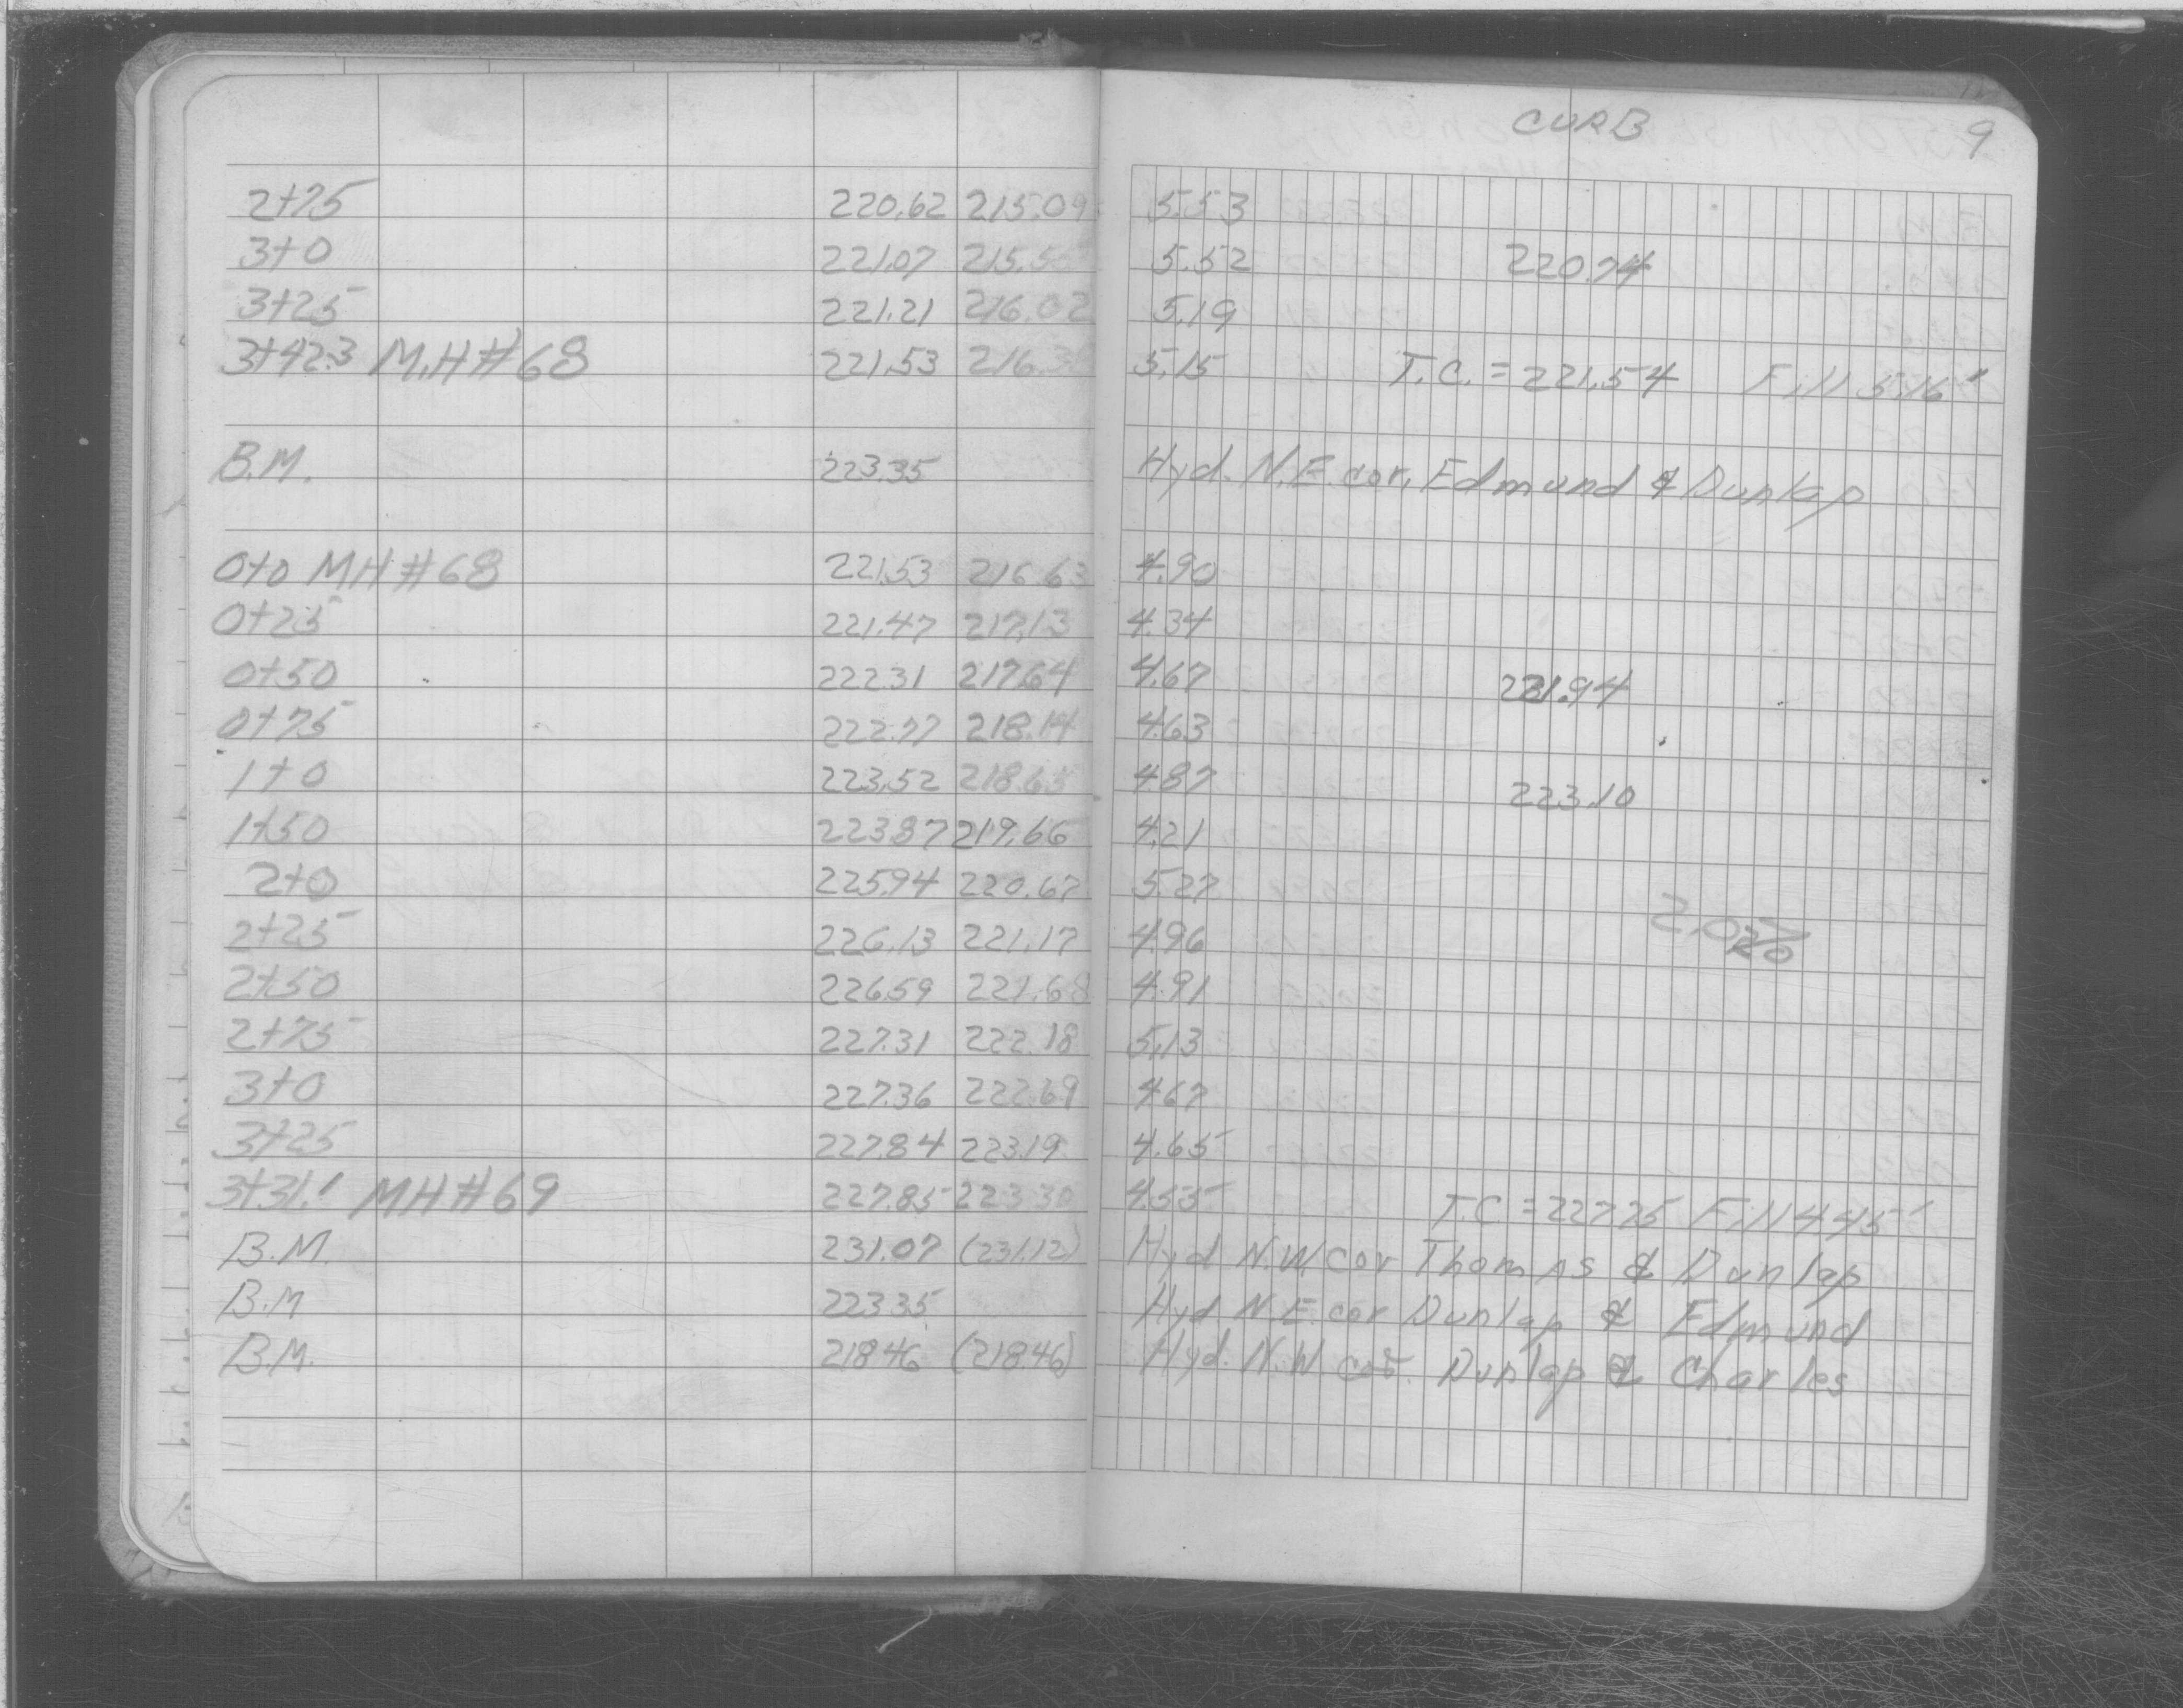 CURB 9
2+75 220.62 215.09 5.53
3+0 221.07 215.55 5.52 220.74
3+25 221.21 216.02 5.19
3+42.3 M.H #68 221.53 216.38 5.15 T.C. = 221.54 Fill 5.16'
B.M. 223.35 Hyd. N.E. cor. Edmund & Dunlap
0+0 MH #68 221.53 216.63 4.90
0+25 221.47 217.13 4.34
0+50 222.31 217.64 4.67 221.94
0+75 222.77 218.14 4.63
1+0 223.52 218.65 4.87 223.10
1+50 223.87 219.66 4.21
2+0 225.94 220.67 5.27
2+25 226.13 221.17 4.96
2+50 226.59 221.68 4.91
2+75 227.31 222.18 5.13
3+0 227.36 222.69 4.67
3+25 227.84 223.19 4.65
3+31.1 MH #69 227.85 223.30 4.55 T.C. = 227.75 Fill 4.45'
B.M. 231.07 (231.12) Hyd N.W. cor Thomas & Dunlap
B.M 223.35 Hyd N.E. cor Dunlap & Edmund
B.M. 218.46 (218.46) Hyd. N.W. cor. Dunlap & Charles